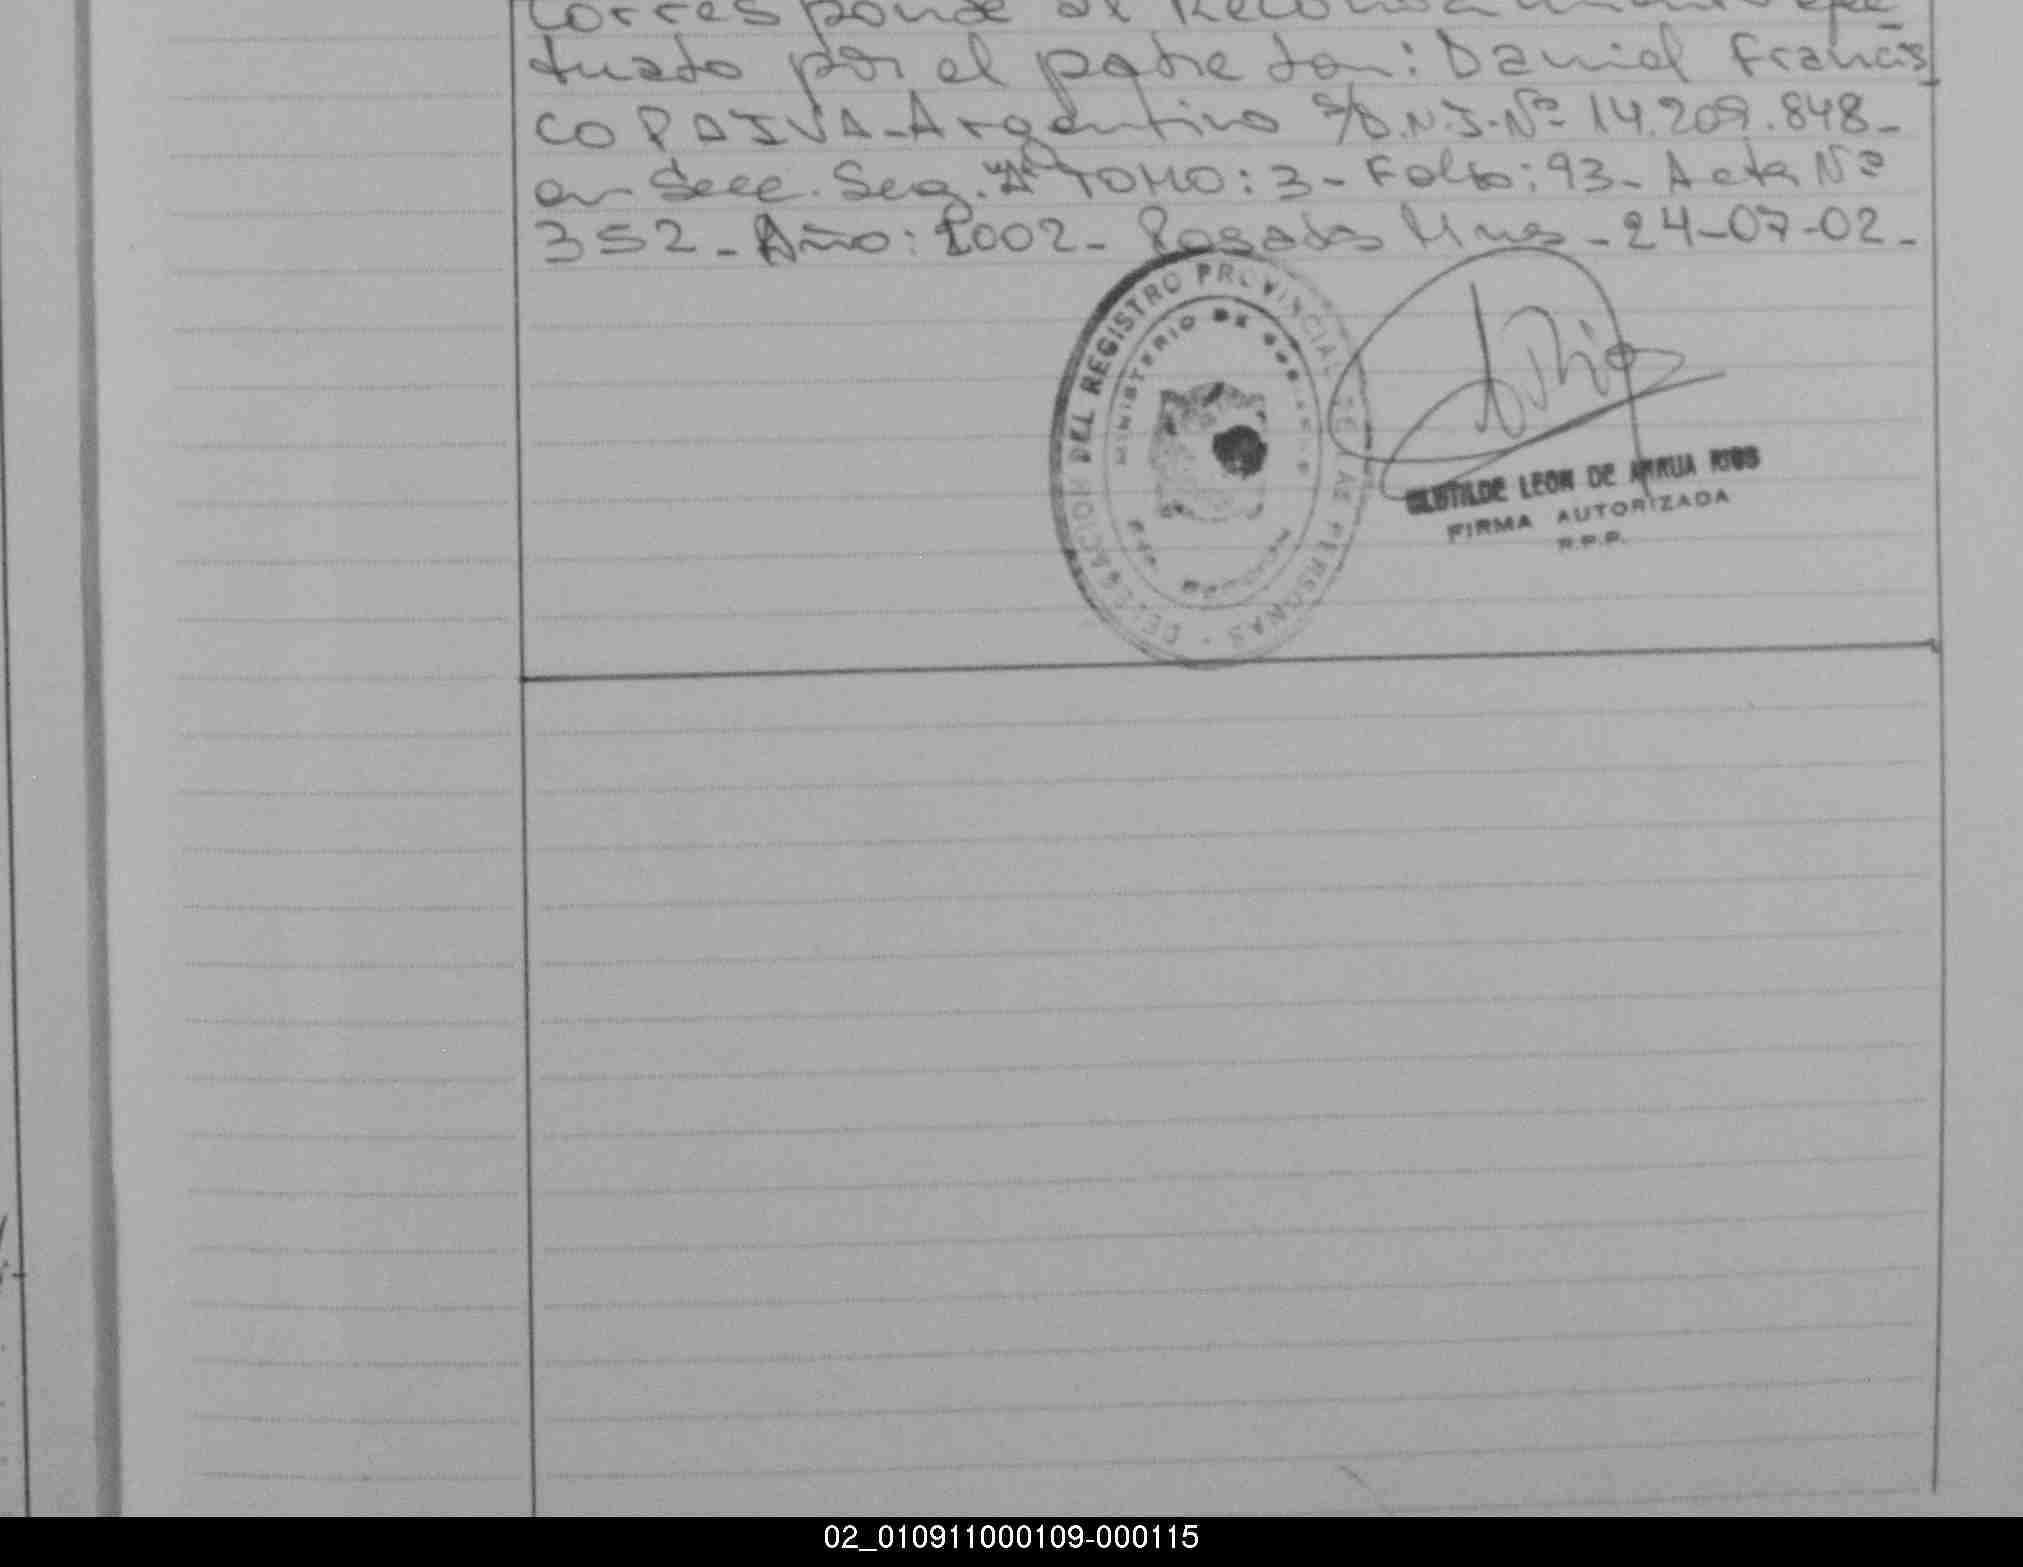 Corresponde al Reconocimiento efec
tuado por el padre don: Daniel Francis
co PAIVA-Argentino s/D.N.I-Nº 14.209.848-
en Secc. Seg. "A" TOMO: 3- Folio: 93- Acta Nº
352- Año: 2002- Posadas Mnes-24-07-02-
DELEGACION DEL REGISTRO PROVINCIAL DE LAS PERSONAS
MINISTERIO DE GOBIERNO
CLOTILDE LEON DE ARRUA RIOS
FIRMA AUTORIZADA
R.P.P.
02_010911000109-000115